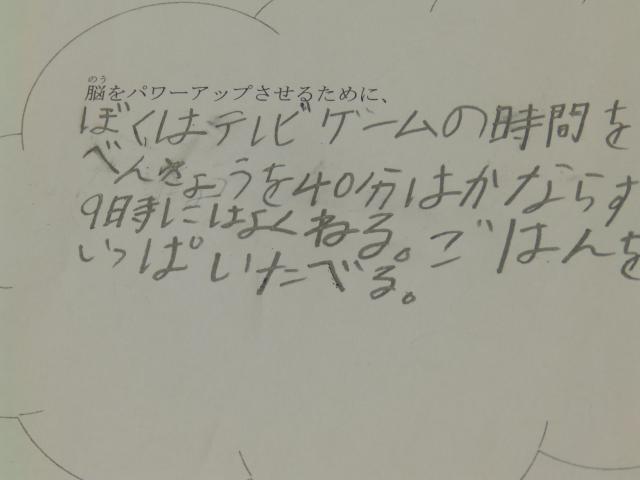 のう
脳をパワーアップさせるために、
ぼくはテレビゲームの時間を
べんきょうを40分はかならず
9時にはよくねる。ごはんを
いっぱいたべる。